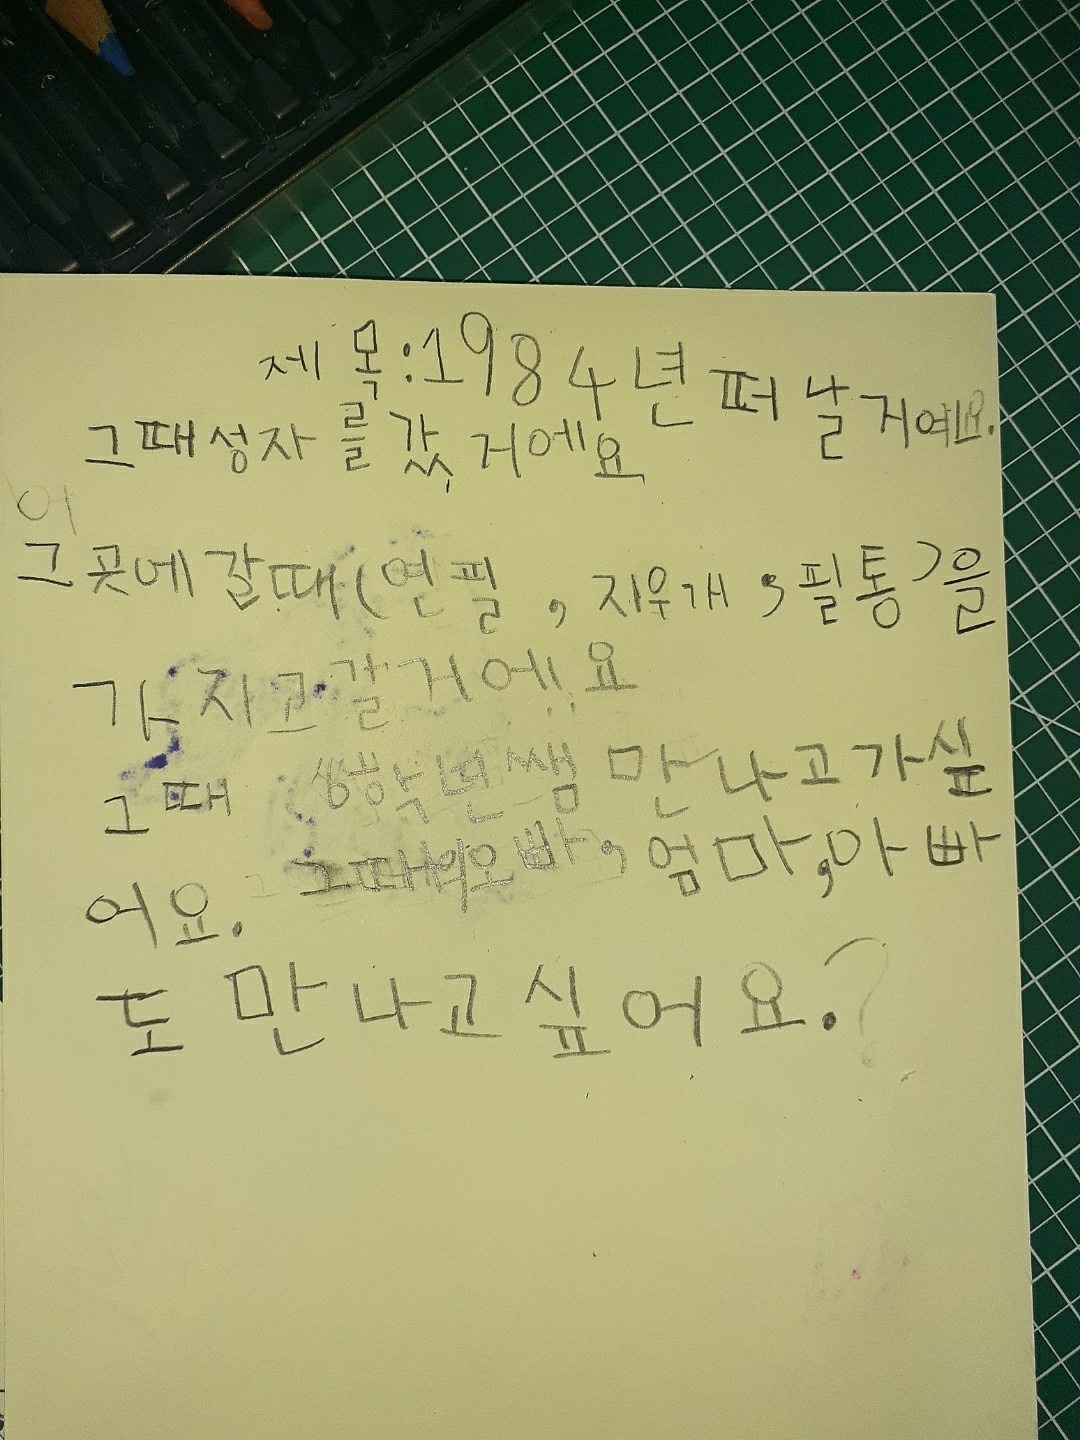 제목:1984년 떠날거예요.
그때성자를갔거에요
어
그곳에갈때(연필, 지우개,필통)을
가지고갈거에요
그때 학년쌤 만나고가싶
어요. 그때 오빠,엄마,아빠
도만나고싶어요.?